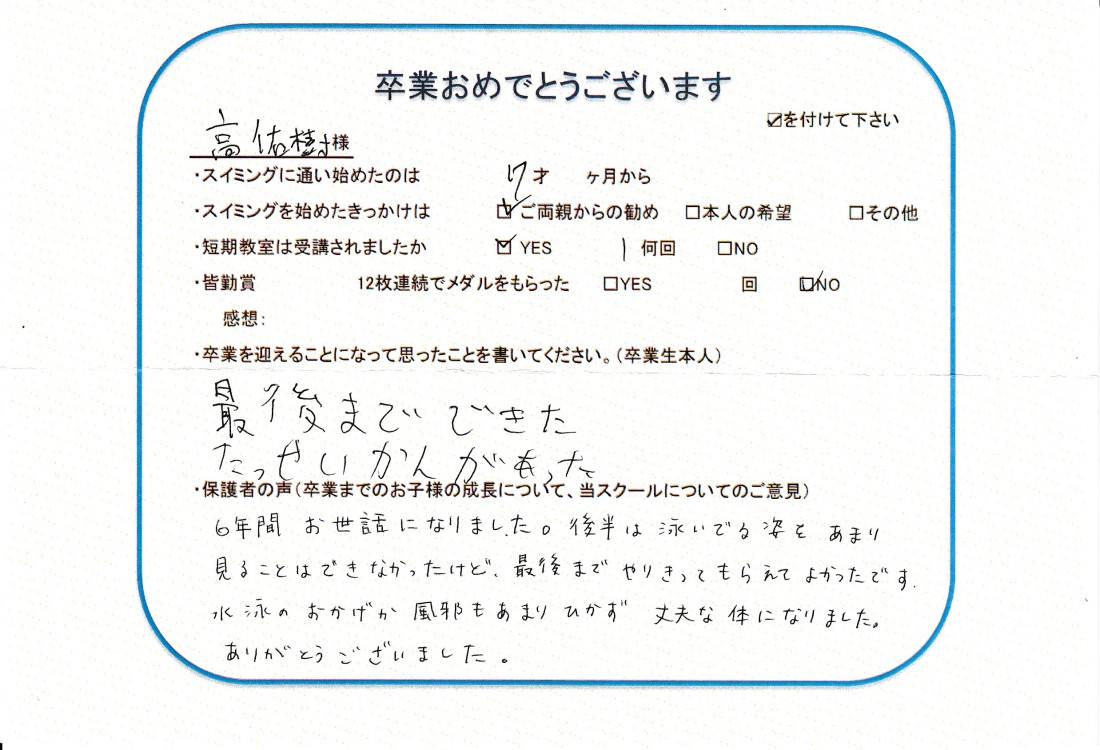 卒業おめでとうございます
☑を付けて下さい
高 佑樹様
・スイミングに通い始めたのは 7才 ヶ月から
・スイミングを始めたきっかけは ☑ご両親からの勧め □本人の希望 □その他
・短期教室は受講されましたか ☑YES 1 何回 □NO
・皆勤賞 12枚連続でメダルをもらった □YES 回 ☑NO
感想:
・卒業を迎えることになって思ったことを書いてください。(卒業生本人)
最後まで できた
たっせいかんがもった
・保護者の声(卒業までのお子様の成長について、当スクールについてのご意見)
6年間 お世話になりました。後半は泳いでる姿を あまり
見ることはできなかったけど、最後まで やりきってもらえて よかったです.
水泳のおかげか 風邪もあまりひかず 丈夫な体になりました。
ありがとうございました。